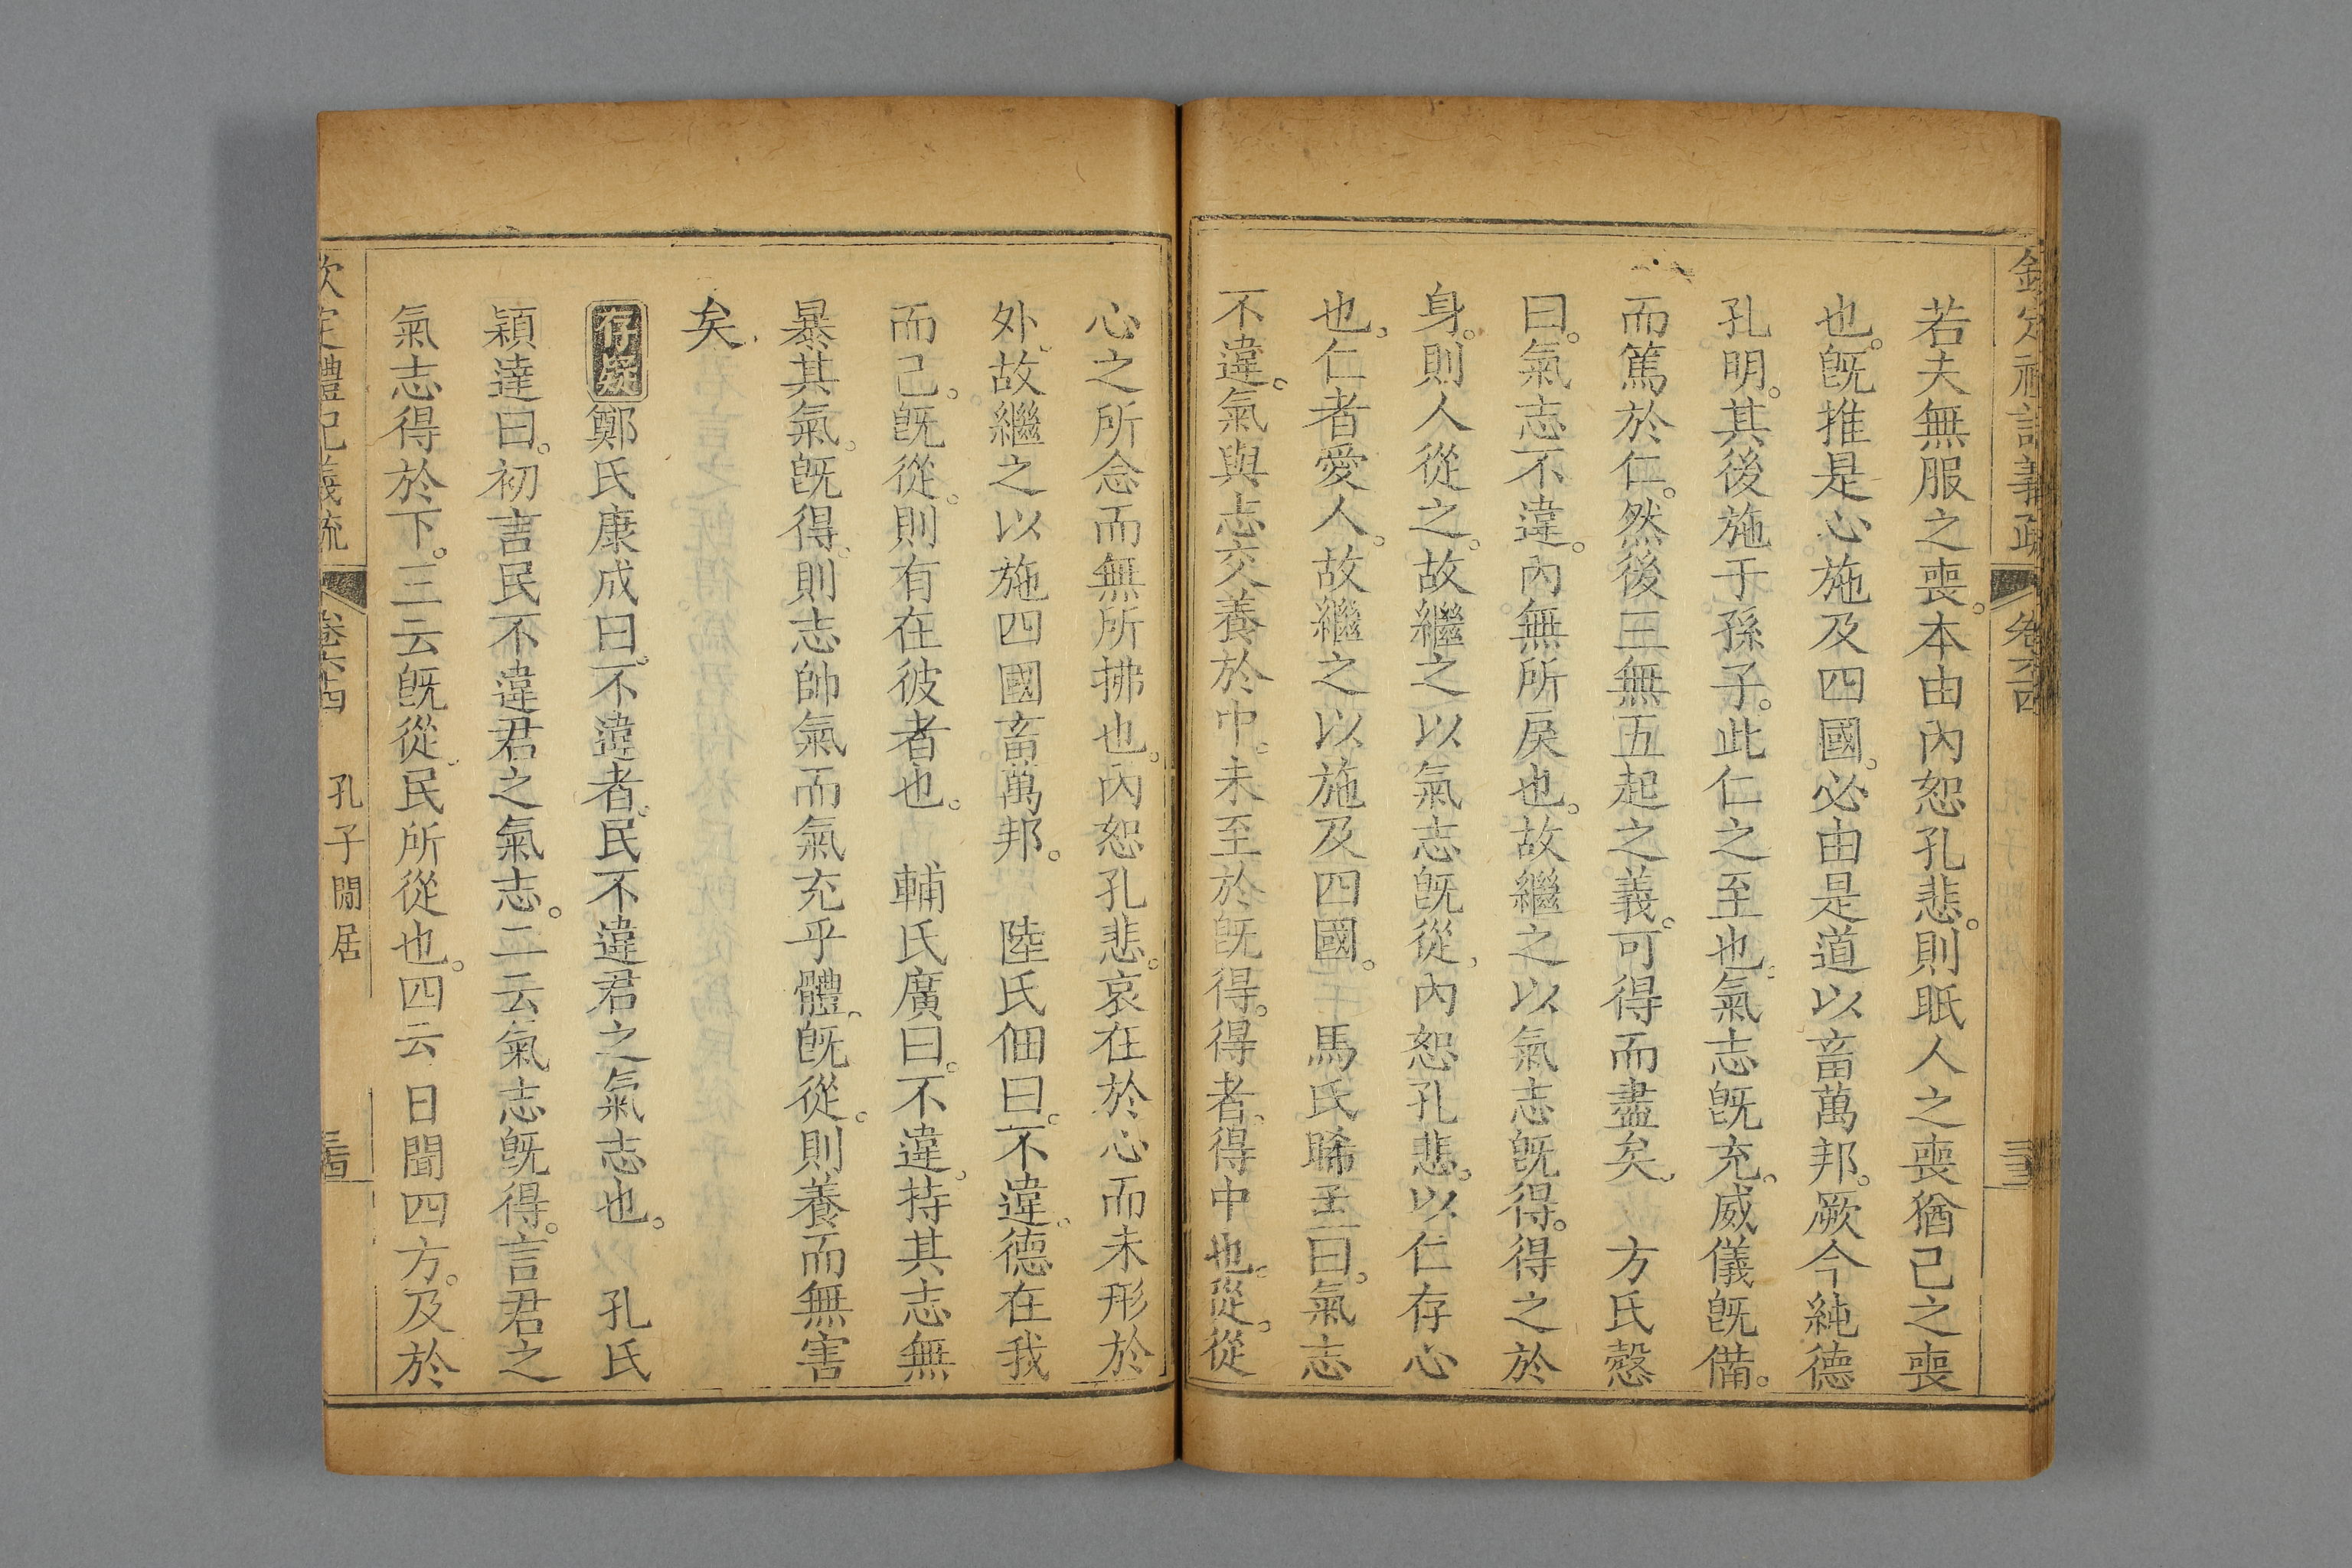 若夫無服之喪。本由內恕孔悲。則眂人之喪猶己之喪
也。旣推是心施及四國。必由是道以畜萬邦。厥今純德
孔明。其後施于孫子。此仁之至也。氣志旣充。威儀旣備。
而篤於仁。然後三無五起之義。可得而盡矣。 方氏慤
曰。氣志不違。內無所戾也。故繼之以氣志旣得。得之於
身。則人從之。故繼之以氣志旣從。內恕孔悲。以仁存心
也。仁者愛人。故繼之以施及四國。 馬氏睎孟曰。氣志
不違。氣與志交養於中。未至於旣得。得者。得中也。從。從
心之所念而無所拂也。內恕孔悲。哀在於心而未形於
外。故繼之以施四國畜萬邦。 陸氏佃曰。不違。德在我
而已。旣從。則有在彼者也。 輔氏廣曰。不違。持其志無
暴其氣。旣得。則志帥氣而氣充乎體。旣從。則養而無害
矣。
存疑鄭氏康成曰。不違者。民不違君之氣志也。 孔氏
穎達曰。初言民不違君之氣志。二云氣志旣得。言君之
氣志得於下。三云旣從。民所從也。四云日聞四方。及於
欽定禮記義疏 卷六十四 孔子閒居